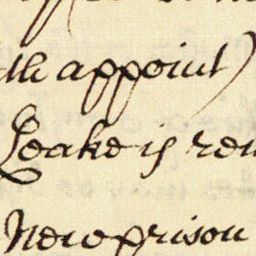 th appoint)
Leake is rem
New prison